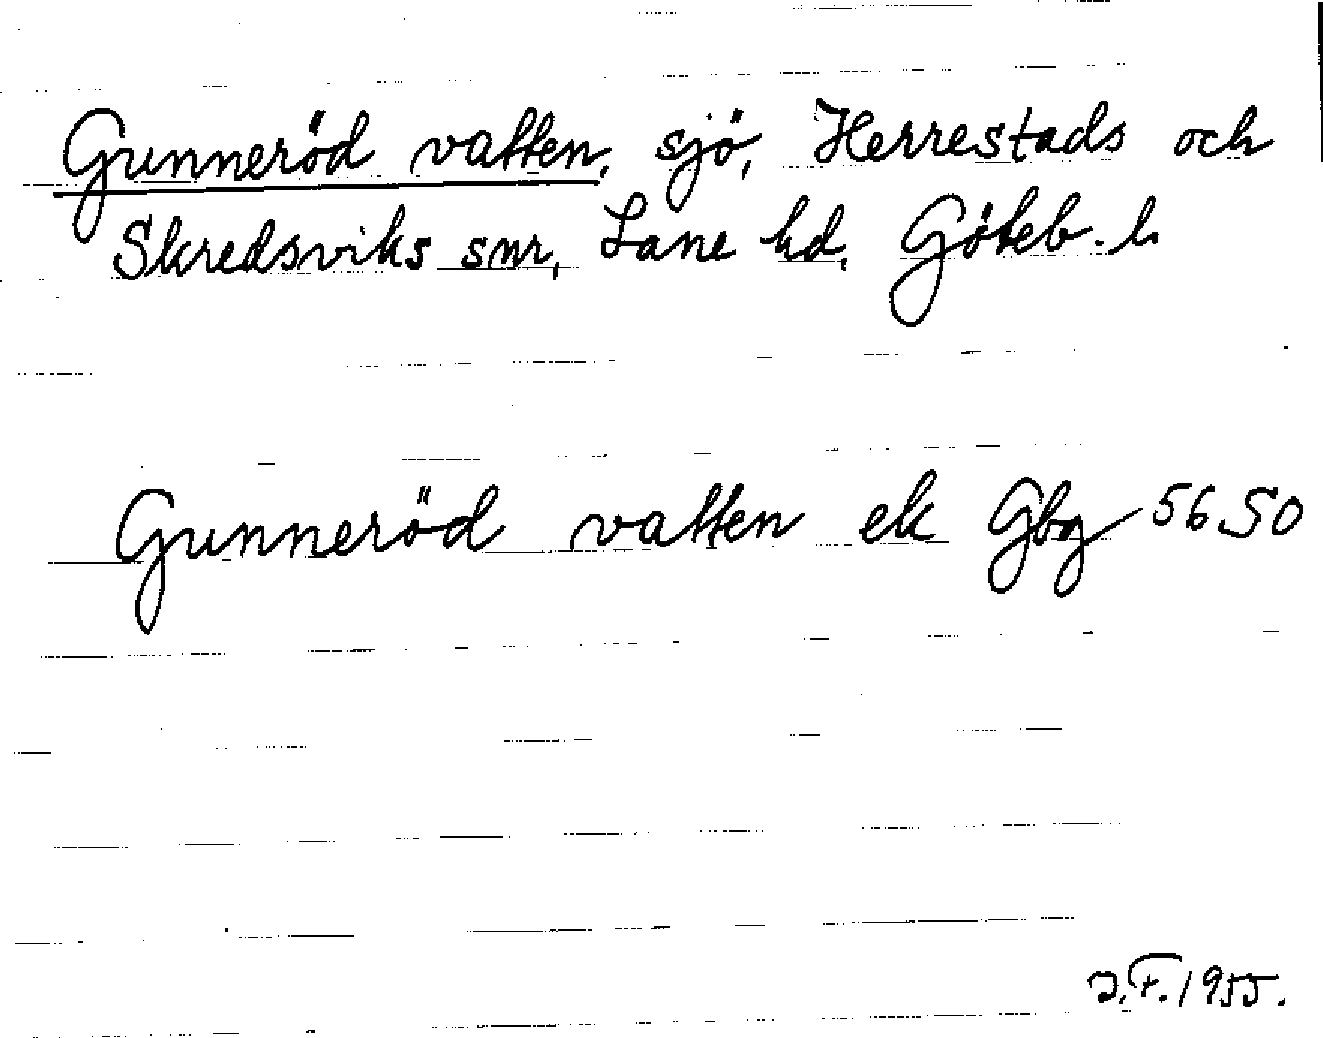 Gunneröd vatten, sjö, Herrestads och
Skredsviks snr, Lane hd, Göteb. l.
Gunneröd vatten ek Gbg 56 50
J.F. 1955.